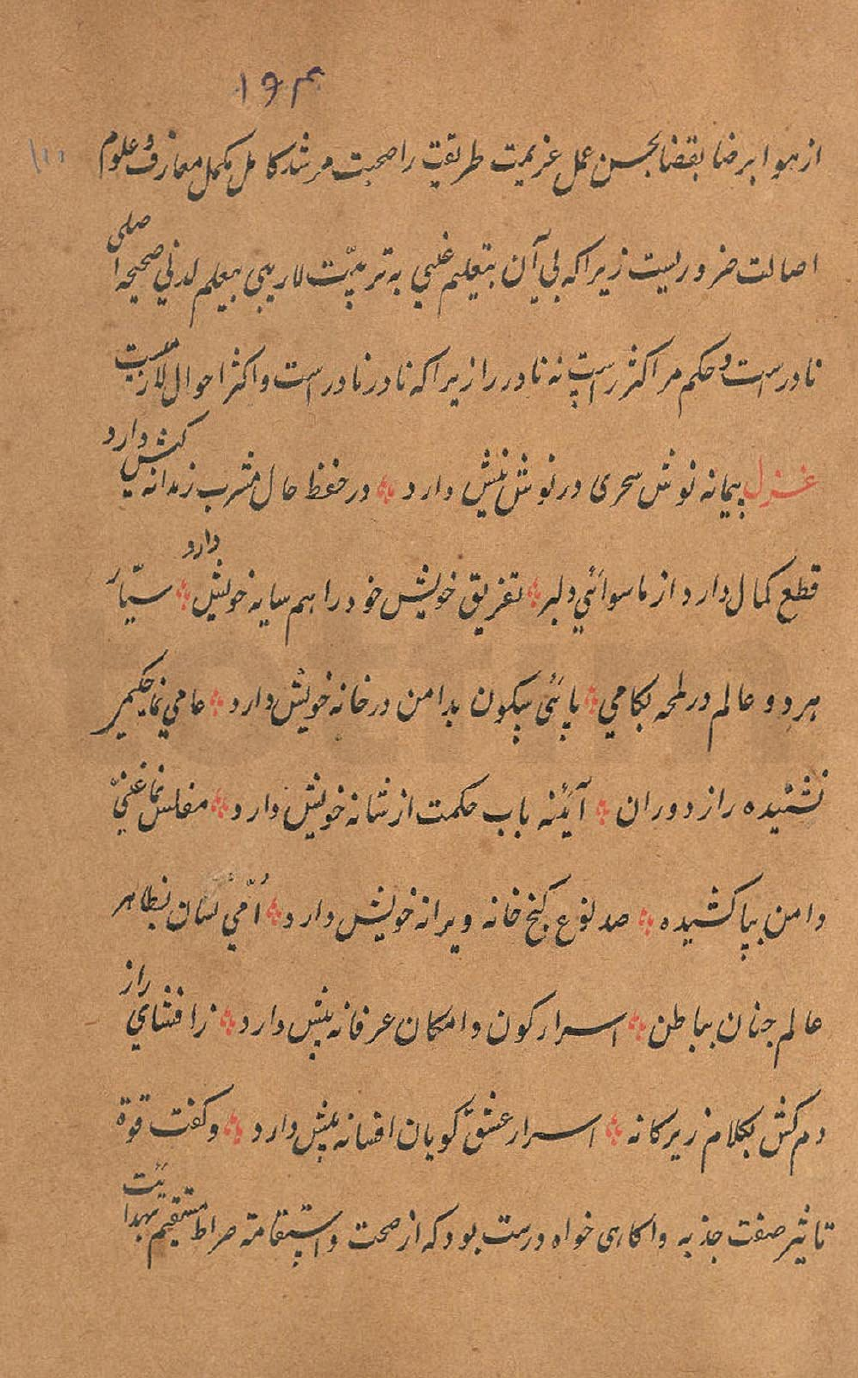 از هوا برضا بقضا بحسن عمل عزیمت طریقت را صحبت مرشد کامل مکمل معارف و علوم
اصالت ضروریست زیرا که بی آن بتعلیم غیبی به تربیّت لاریبی بعلم لدنی صحیحه اصلی
نادر است و حکم مر اکثر راست نه نادر را زیرا که نادر نادر است و اکثر احوال لاریبست
غزل پیمانه نوش سحری در نوش نیش دارد در حفظ حال مشرب رندانه کیش دارد
قطع کمال دارد از ماسوائی دلبر تفریق خویش خود را هم سایه خویش دارد سیّار
هر دو عالم در لمحه بکامی پائی سکون بدامن در خانه خویش دارد عامی نما حکیم
نشنیده راز دوران آئینه باب حکمت از شانه خویش دارد مفلس نما غنیّ
دامن بپا کشیده صد نوع گنج خانه ویرانه خویش دارد اُمّی لسان بظاهر
عالم جنان بباطن اسرار کون و امکان عرفانه پیش دارد زافشای راز
دم کش بکلام زیرکانه اسرار عشق گویان افسانه پیش دارد و گفت قوة
تاثیر صفت جذبه و اکاهی خواه درست بود که از صحت و استقامة صراط مستقیم بهدائیت